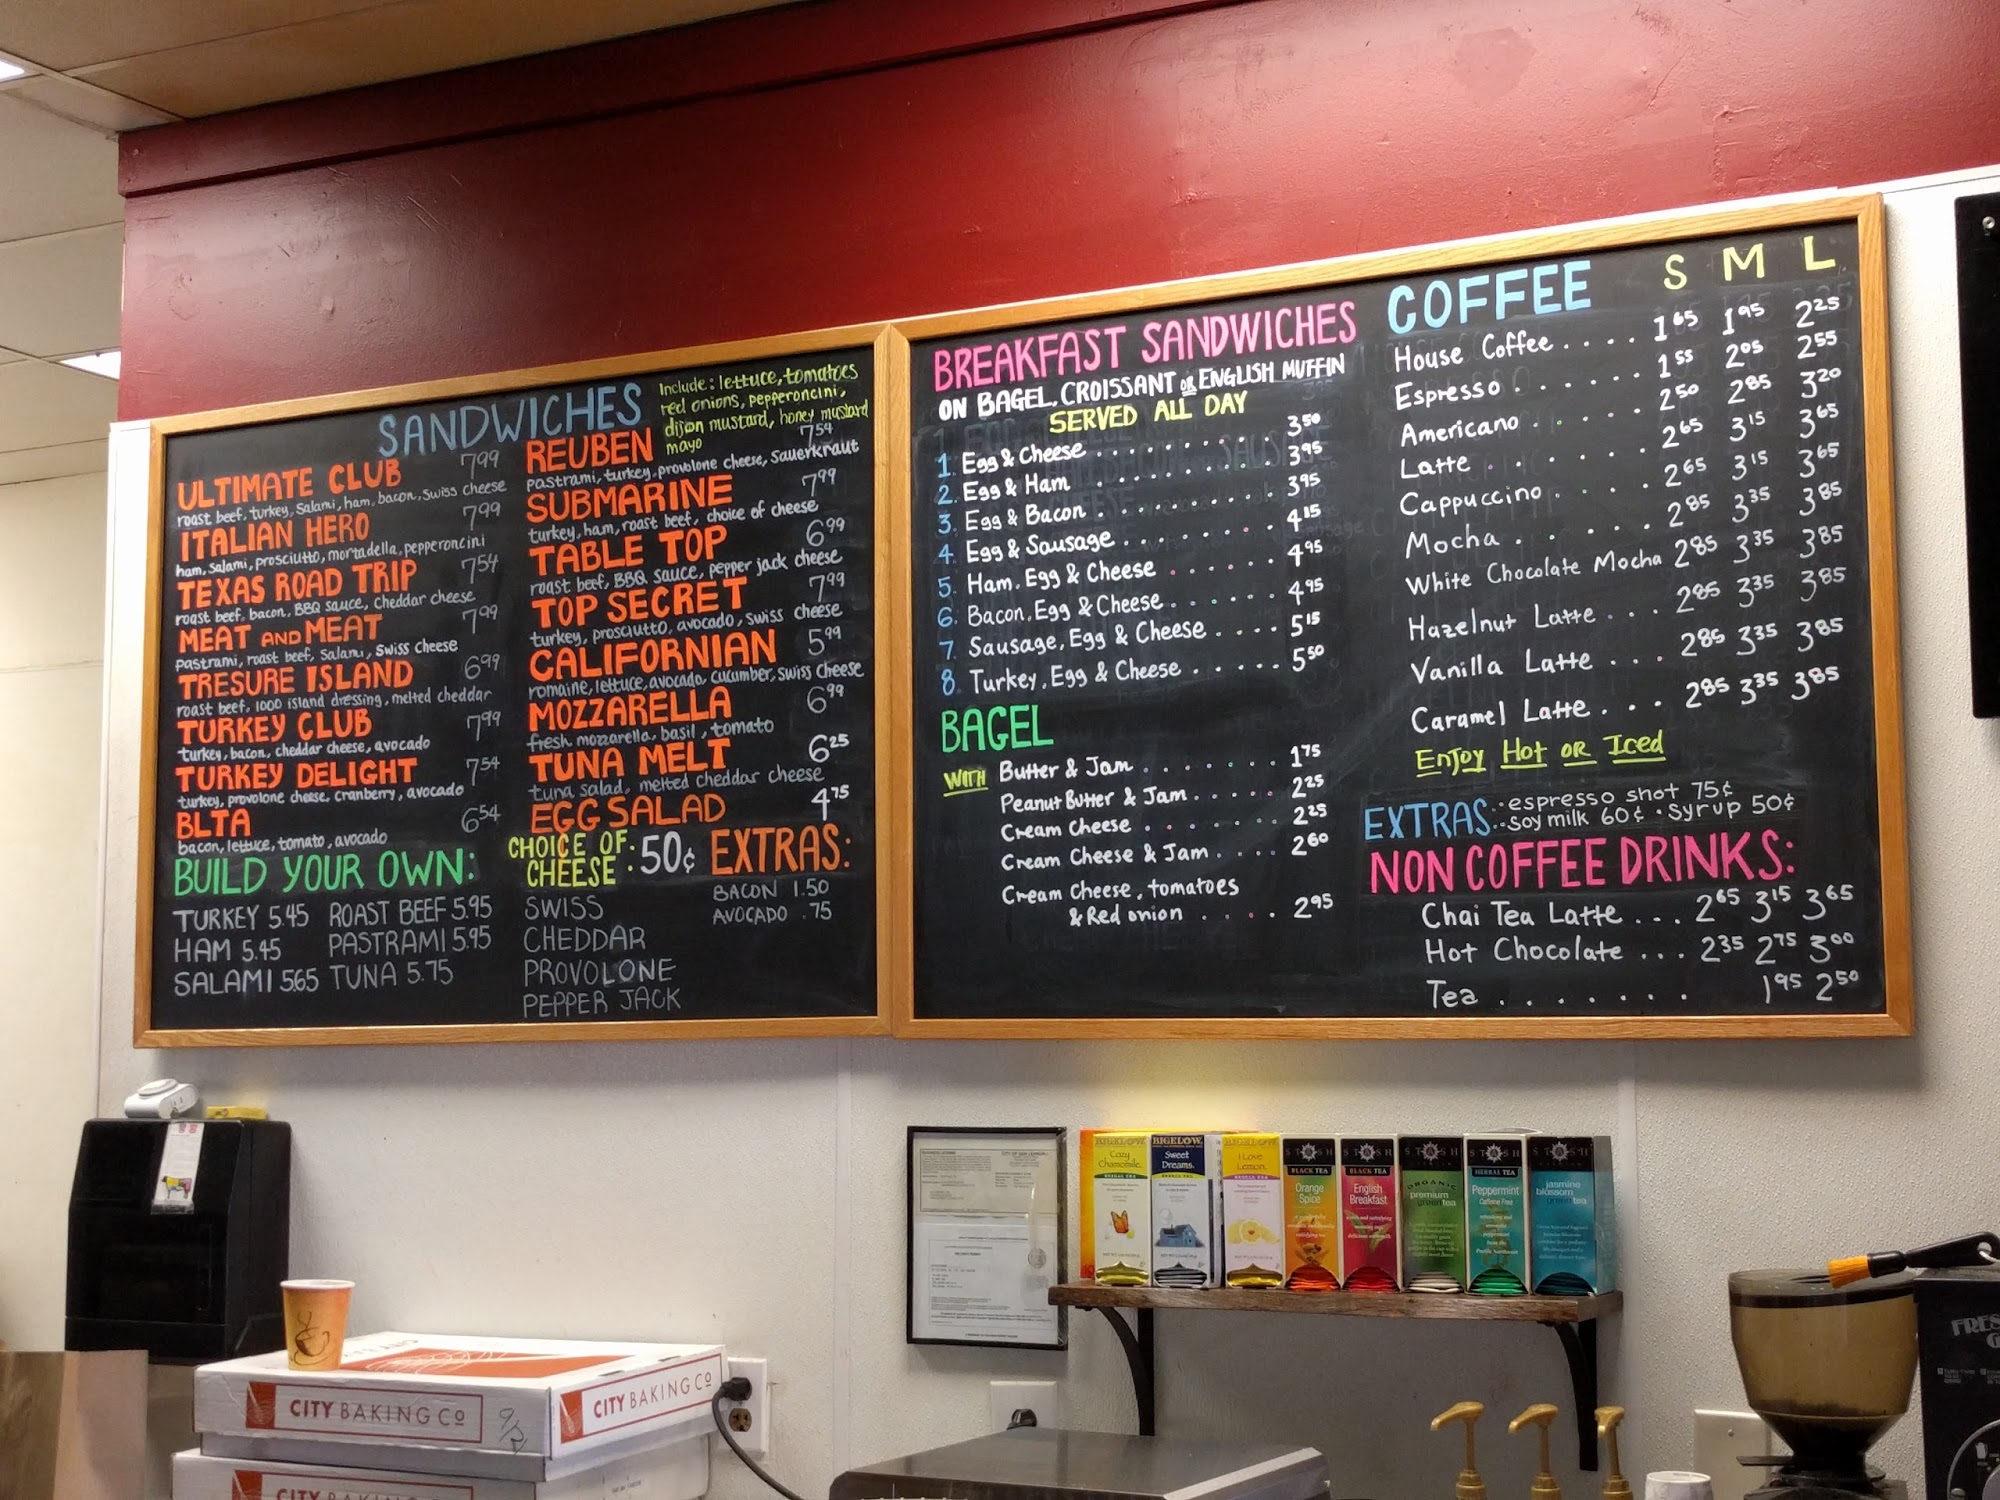 SANDWICHES
Include: lettuce, tomatoes
red onions, pepperoncini,
dijon mustard, honey mustard
mayo
ULTIMATE CLUB 7.99
roast beef, turkey, salami, ham, bacon, swiss cheese
ITALIAN HERO 7.99
ham, salami, prosciutto, mortadella, pepperoncini
TEXAS ROAD TRIP 7.54
roast beef, bacon, BBQ sauce, cheddar cheese
MEAT AND MEAT 7.99
pastrami, roast beef, salami, swiss cheese
TRESURE ISLAND 6.99
roast beef, 1000 island dressing, melted cheddar
TURKEY CLUB 7.99
turkey, bacon, cheddar cheese, avocado
TURKEY DELIGHT 7.54
turkey, provolone cheese, cranberry, avocado
BLTA 6.54
bacon, lettuce, tomato, avocado
REUBEN 7.54
pastrami, turkey, provolone cheese, sauerkraut
SUBMARINE 7.99
turkey, ham, roast beef, choice of cheese
TABLE TOP 6.99
roast beef, BBQ sauce, pepper jack cheese
TOP SECRET 7.99
turkey, prosciutto, avocado, swiss cheese
CALIFORNIAN 5.99
romaine, lettuce, avocado, cucumber, swiss cheese
MOZZARELLA 6.99
fresh mozzarella, basil, tomato
TUNA MELT 6.25
tuna salad, melted cheddar cheese
EGG SALAD 4.75
BUILD YOUR OWN:
TURKEY 5.45 ROAST BEEF 5.95
HAM 5.45 PASTRAMI 5.95
SALAMI 5.65 TUNA 5.75
CHOICE OF
CHEESE: 50¢
SWISS
CHEDDAR
PROVOLONE
PEPPER JACK
EXTRAS:
BACON 1.50
AVOCADO .75
BREAKFAST SANDWICHES
ON BAGEL, CROISSANT OR ENGLISH MUFFIN
SERVED ALL DAY
1. Egg & Cheese 3.50
2. Egg & Ham 3.95
3. Egg & Bacon 3.95
4. Egg & Sausage 4.15
5. Ham, Egg & Cheese 4.95
6. Bacon, Egg & Cheese 4.95
7. Sausage, Egg & Cheese 5.15
8. Turkey, Egg & Cheese 5.50
BAGEL
WITH Butter & Jam 1.75
Peanut Butter & Jam 2.25
Cream Cheese 2.25
Cream Cheese & Jam 2.60
Cream Cheese, tomatoes
& Red onion 2.95
COFFEE S M L
House Coffee 1.65 1.95 2.25
Espresso 1.55 2.05 2.55
Americano 2.50 2.85 3.20
Latte 2.65 3.15 3.65
Cappuccino 2.65 3.15 3.65
Mocha 2.85 3.35 3.85
White Chocolate Mocha 2.85 3.35 3.85
Hazelnut Latte 2.85 3.35 3.85
Vanilla Latte 2.85 3.35 3.85
Caramel Latte 2.85 3.35 3.85
Enjoy Hot or Iced
EXTRAS: · espresso shot 75¢
· soy milk 60¢ · syrup 50¢
NON COFFEE DRINKS:
Chai Tea Latte 2.65 3.15 3.65
Hot Chocolate 2.35 2.75 3.00
Tea 1.95 2.50
BIGELOW
Cozy
Chamomile
HERBAL TEA
BIGELOW
Sweet
Dreams
HERBAL TEA
BIGELOW
I Love
Lemon
HERBAL TEA
STASH
BLACK TEA
Orange
Spice
STASH
BLACK TEA
English
Breakfast
STASH
ORGANIC
premium
green tea
STASH
HERBAL TEA
Peppermint
Caffeine Free
STASH
jasmine
blossom
green tea
CITY BAKING Co
CITY BAKING Co
CITY BAKING Co